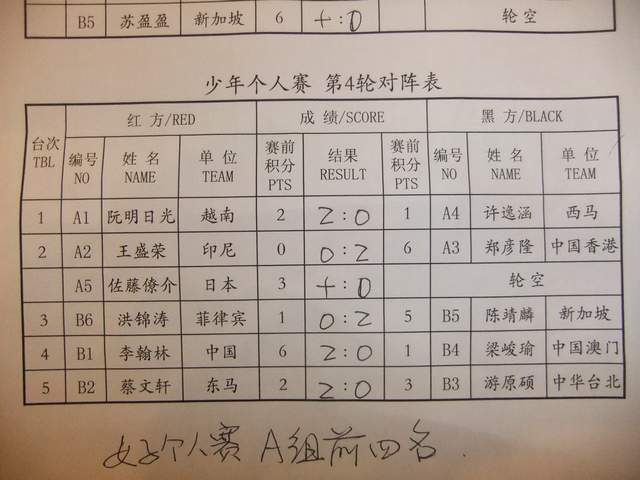 B5 苏盈盈 新加坡 6 +:0 轮空
少年个人赛 第4轮对阵表
台次 TBL 红方/RED 成绩/SCORE 黑方/BLACK
编号 NO 姓名 NAME 单位 TEAM 赛前积分 PTS 结果 RESULT 赛前积分 PTS 编号 NO 姓名 NAME 单位 TEAM
1 A1 阮明日光 越南 2 2:0 1 A4 许逸涵 西马
2 A2 王盛荣 印尼 0 0:2 6 A3 郑彦隆 中国香港
A5 佐藤僚介 日本 3 +:0 轮空
3 B6 洪锦涛 菲律宾 1 0:2 5 B5 陈靖麟 新加坡
4 B1 李翰林 中国 6 2:0 1 B4 梁峻瑜 中国澳门
5 B2 蔡文轩 东马 2 2:0 3 B3 游原硕 中华台北
女子个人赛 A组前四名.